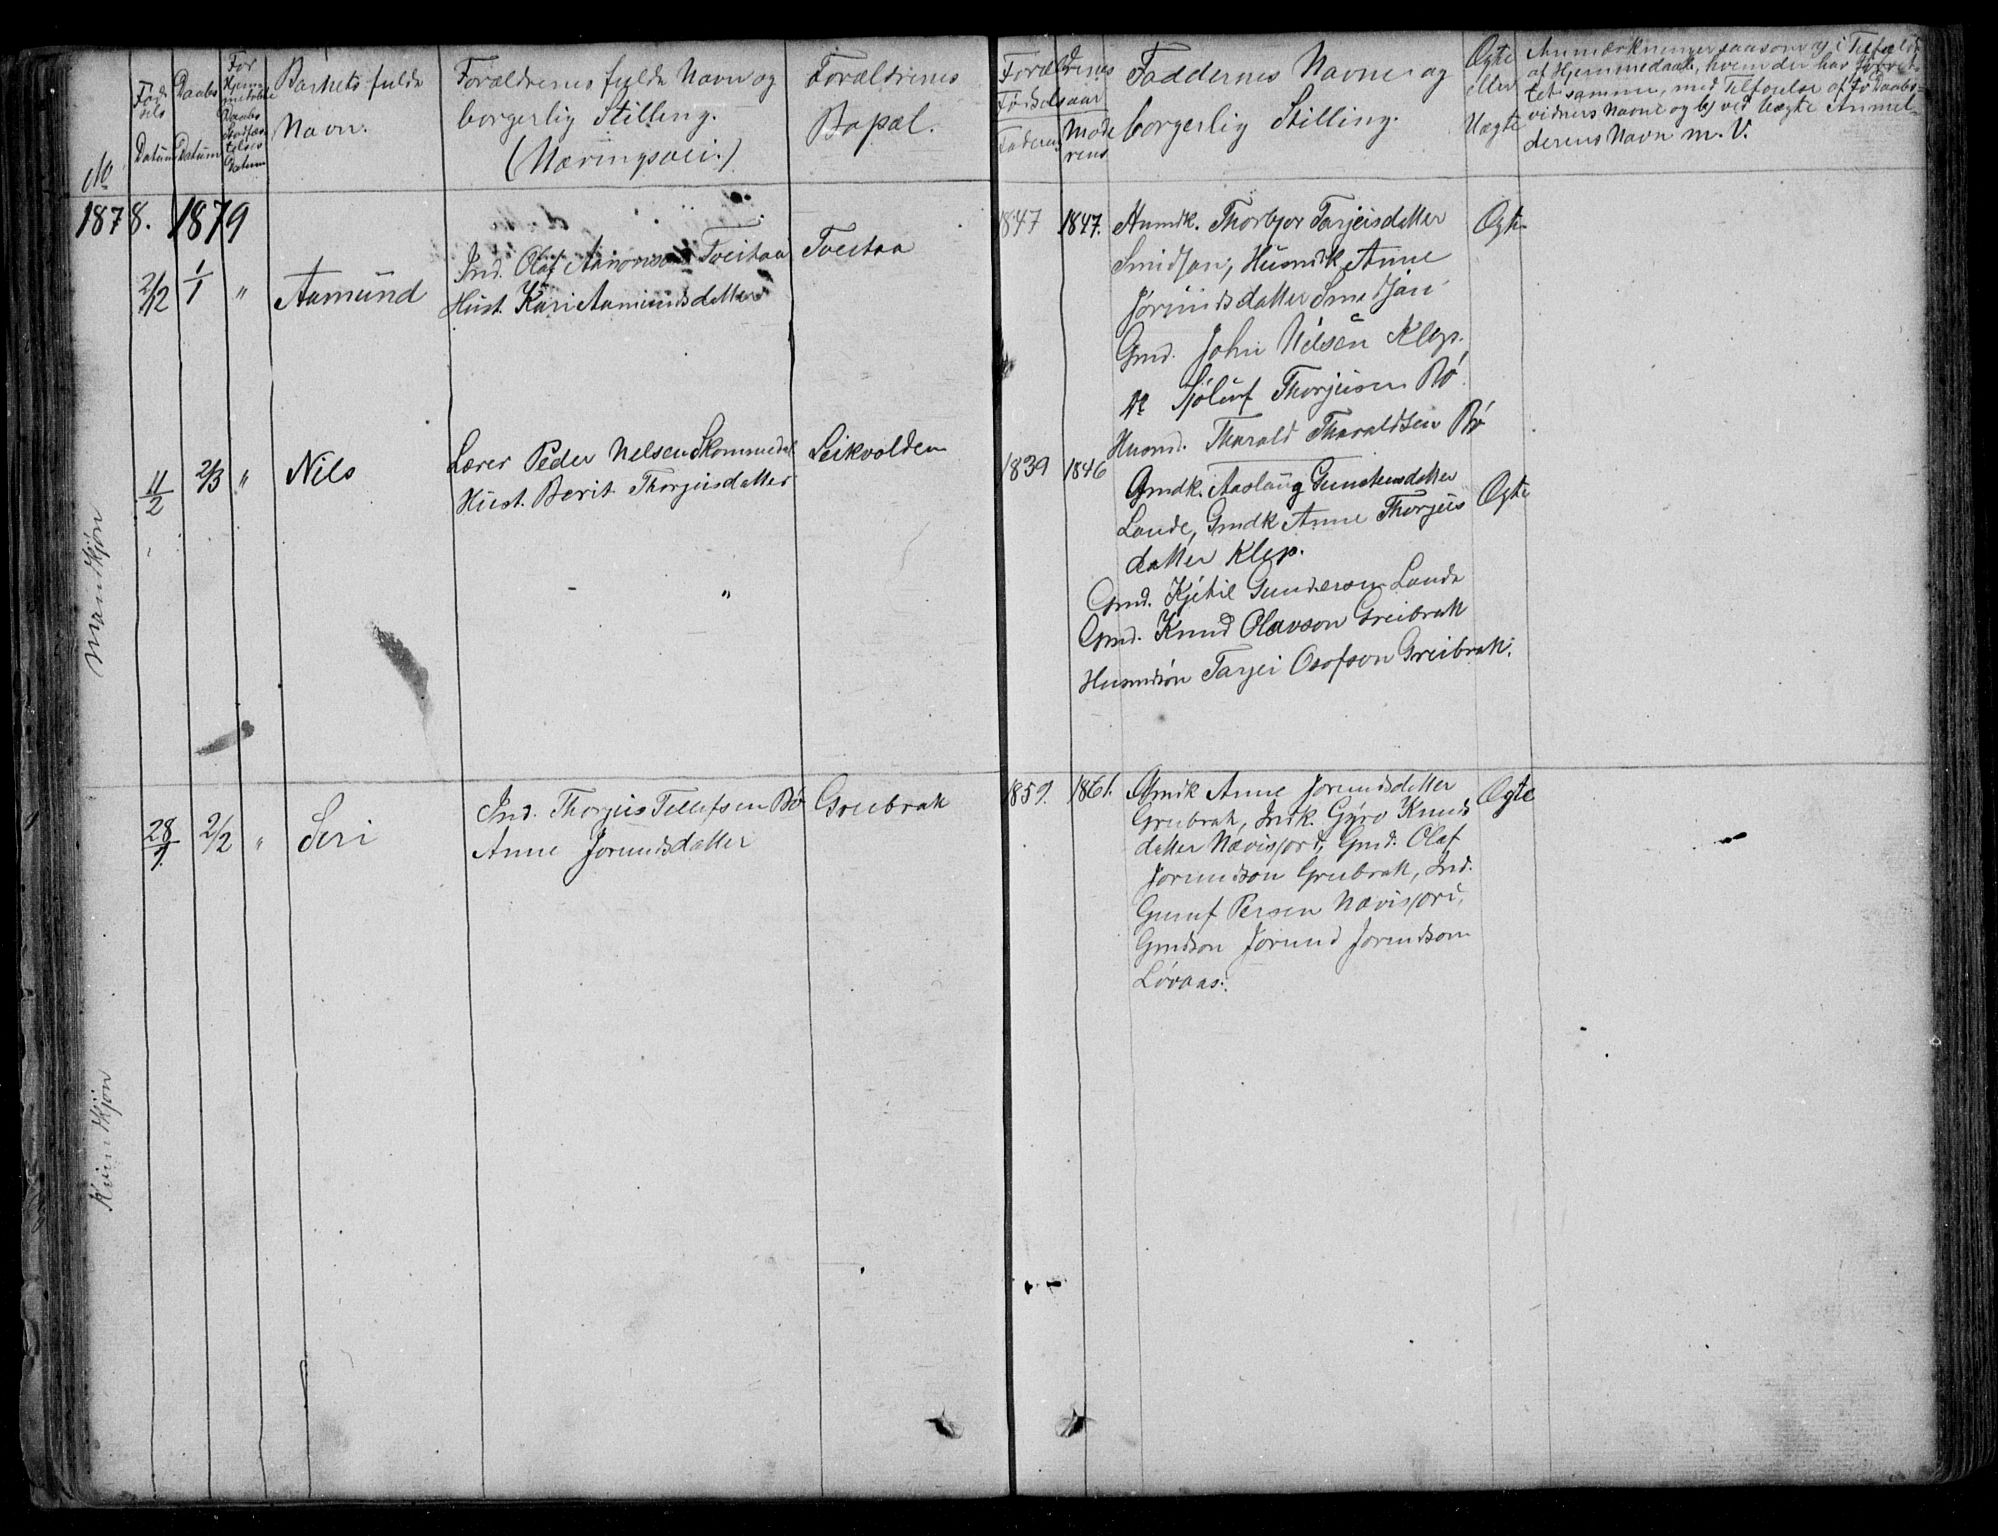 No
Fødsels
Datum
Daabs
Datum
For
Hjemmedøbte
Daabs
Stadfæstelses
Datum
Barnets fulde
Navn.
Forældrenes fulde Navn og
borgerlig Stilling.
(Næringsvei.)
Forældrenes
Bopæl.
Forældrenes
Fødselsaar
Faderens
Moderens
Faddernes Navne og
borgerlig Stilling.
Ægte
eller
Uægte
Anmærkninger saasom a) i Tilfælde
af Hjemmedaab, hvem der har forret-
tet samme, med Tilføielse af to Daabs-
vidners Navne og b) ved Uægte Anmel-
derens Navn m. V.
1878. 1879
Mandkjøn
2/12 1/1 " Aamund
Ind. Olaf Aanonsen Tveitaa
Hust. Kari Aamundsdatter
Tveitaa
1847 1847.
Thorbjor Tarjeisdatter
Smedjan, Husmdk Anne
Jørundsdatter Smedjan
Gmd. John Nilsen Klep.
Sjøluf Thorjusen Bø
Husmd. Tharald Tharaldsen Bø
Ægte
11/2 2/3 " Nils
Lærer Peder Nelsen Skommedal
Hust. Berit Thorjusdatter
Leikvolden
1839 1846
Gmdk. Aaslaug Gunstensdatter
Lande, Gmdk Anne Thorjus
datter Klep.
Gmd. Kjetil Gunderson Lande
Gmd. Knud Olavson Greibrok
Husmdsøn Tarjei Osofson Greibrok.
Ægte
"
Kvindkjøn
28/9 2/2 " Seri
Ind. Thorjus Tellefsen Bø
Anne Jorundsdatter
Greibrok
1859. 1861.
Gmdk Anne Jorundsdatter
Greibrok, Indk. Gyro Knuds
datter Nævisjord, Gmd. Olaf
Jorundson Greibrok, Ind.
Persen Nævisjord,
Gmdson Jorund Jorundson
Løvaas.
Ægte